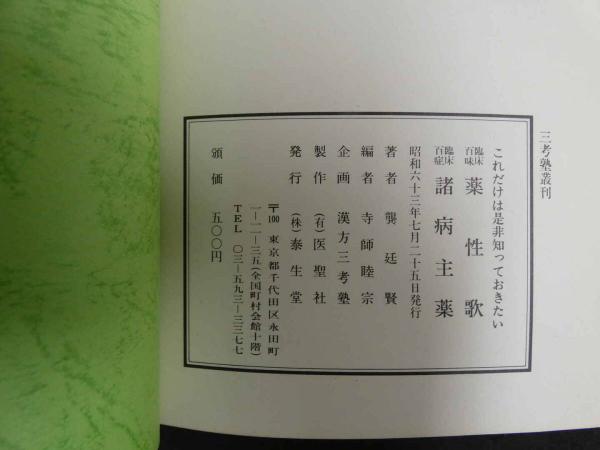 三考塾叢刊
これだけは是非知っておきたい
臨床百味 薬性歌
臨床百症 諸病主薬
昭和六十三年七月二十五日発行
著者 龔廷賢
編者 寺師睦宗
企画 漢方三考塾
製作 (有)医聖社
発行 (株)泰生堂
〒100 東京都千代田区永田町
一―一一―三五(全国町村会館十階)
TEL 〇三―五九三―三三七七
頒価 五〇〇円